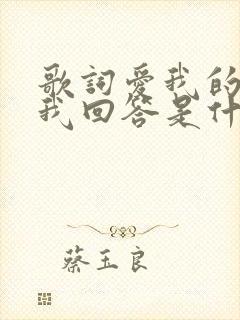 歌詞愛我的
我回答是什
蔡玉良